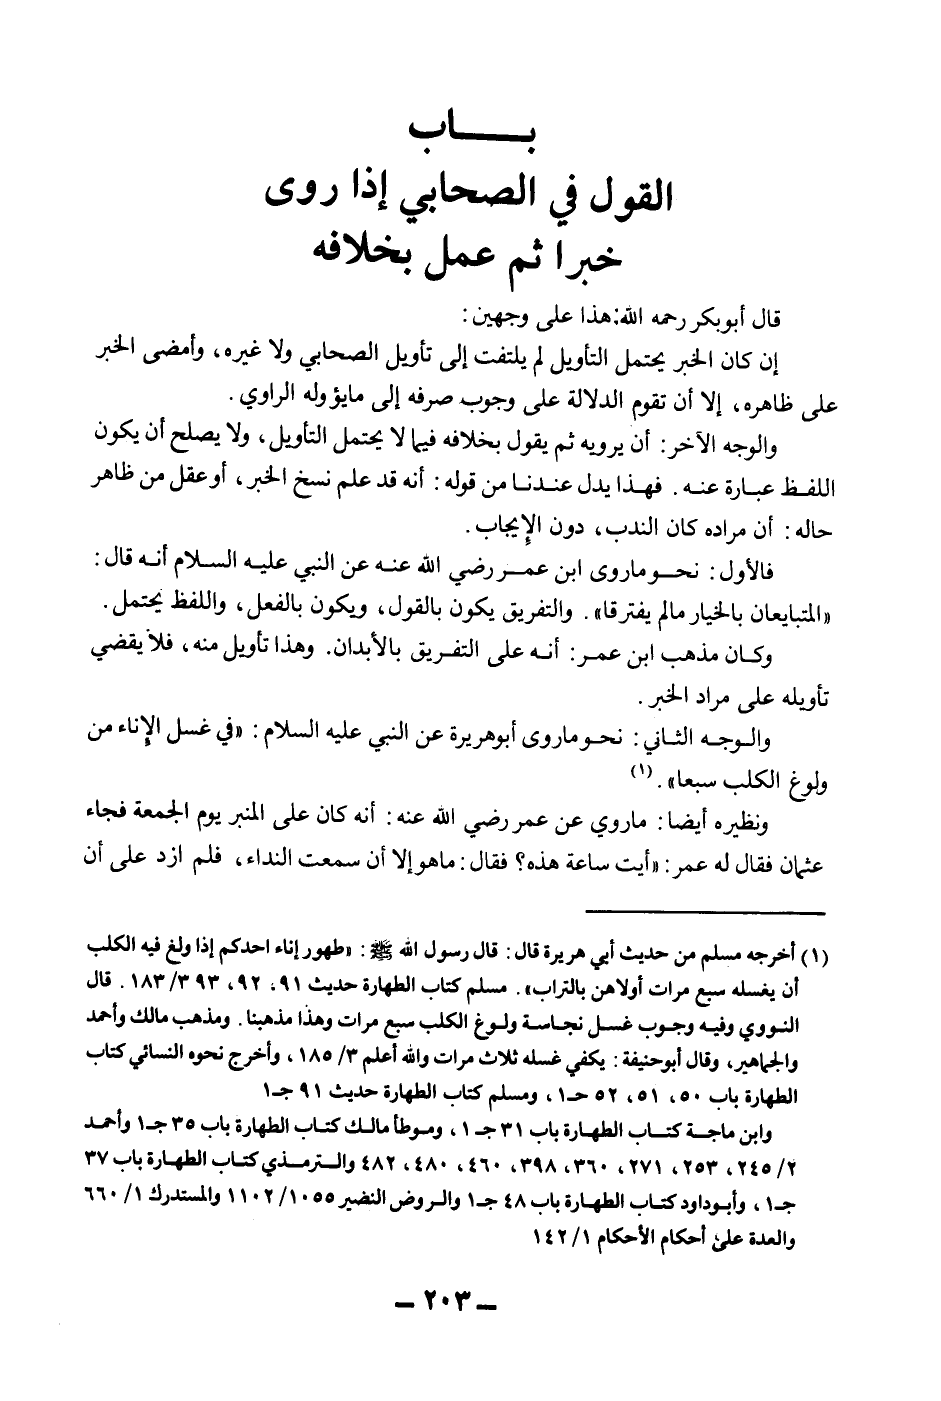 بـــــاب
القول في الصحابي إذا روى
خبرا ثم عمل بخلافه
قال أبوبكر رحمه الله: هذا على وجهين:
إن كان الخبر يحتمل التأويل لم يلتفت إلى تأويل الصحابي ولا غيره، وأمضى الخبر
على ظاهره، إلا أن تقوم الدلالة على وجوب صرفه إلى مايؤوله الراوي.
والوجه الآخر: أن يرويه ثم يقول بخلافه فيما لا يحتمل التأويل، ولا يصلح أن يكون
اللفظ عبارة عنه. فهذا يدل عندنا من قوله: أنه قد علم نسخ الخبر، أو عقل من ظاهر
حاله: أن مراده كان الندب، دون الإيجاب.
فالأول: نحو ماروى ابن عمر رضي الله عنه عن النبي عليه السلام أنه قال:
«المتبايعان بالخيار مالم يفترقا». والتفريق يكون بالقول، ويكون بالفعل، واللفظ يحتمل.
وكان مذهب ابن عمر: أنه على التفريق بالأبدان. وهذا تأويل منه، فلا يقضي
تأويله على مراد الخبر.
والوجه الثاني: نحو ماروى أبوهريرة عن النبي عليه السلام: «في غسل الإناء من
ولوغ الكلب سبعا».(١)
ونظيره أيضا: ماروي عن عمر رضي الله عنه: أنه كان على المنبر يوم الجمعة فجاء
عثمان فقال له عمر: «أيت ساعة هذه؟ فقال: ماهو إلا أن سمعت النداء، فلم ازد على أن
(١) أخرجه مسلم من حديث أبي هريرة قال: قال رسول الله ﷺ: «طهور إناء احدكم إذا ولغ فيه الكلب
أن يغسله سبع مرات أولاهن بالتراب». مسلم كتاب الطهارة حديث ٩١، ٩٢، ٩٣ ٣/ ١٨٣. قال
النووي وفيه وجوب غسل نجاسة ولوغ الكلب سبع مرات وهذا مذهبنا. ومذهب مالك وأحمد
والجماهير، وقال أبوحنيفة: يكفي غسله ثلاث مرات والله أعلم ٣/ ١٨٥، وأخرج نحوه النسائي كتاب
الطهارة باب ٥٠، ٥١، ٥٢ حـ١، ومسلم كتاب الطهارة حديث ٩١ جـ١
وابن ماجة كتاب الطهارة باب ٣١ جـ١، وموطأ مالك كتاب الطهارة باب ٣٥ جـ١ وأحمد
٢/ ٢٤٥، ٢٥٣، ٢٧١، ٣٦٠، ٣٩٨، ٤٦٠، ٤٨٠، ٤٨٢ والترمذي كتاب الطهارة باب ٣٧
جـ١، وأبوداود كتاب الطهارة باب ٤٨ جـ١ والروض النضير ١٠٥٥/ ١١٠٢ والمستدرك ١/ ٦٦٠
والعدة على أحكام الأحكام ١/ ١٤٢
ـ ٢٠٣ ـ